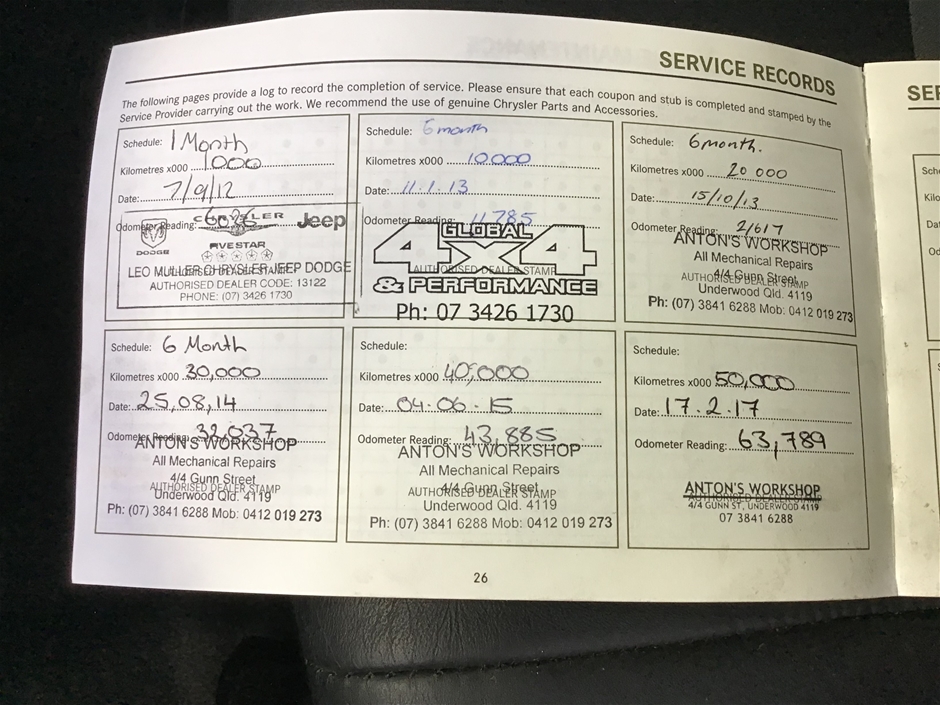 SERVICE RECORDS
The following pages provide a log to record the completion of service. Please ensure that each coupon and stub is completed and stamped by the
Service Provider carrying out the work. We recommend the use of genuine Chrysler Parts and Accessories.
Schedule: 1 Month
Kilometres x000 1000
Date: 7/9/12
Odometer Reading:
CHRYSLER
Jeep
DODGE
FIVE STAR
LEO MULLER CHRYSLER JEEP DODGE
AUTHORISED DEALER CODE: 13122
PHONE: (07) 3426 1730
Schedule: 6 month
Kilometres x000 10000
Date: 11.1.13
Odometer Reading: 11785
GLOBAL
4X4
AUTHORISED DEALER STAMP
& PERFORMANCE
Ph: 07 3426 1730
Schedule: 6 month.
Kilometres x000 20 000
Date: 15/10/13
Odometer Reading: 21617
ANTON'S WORKSHOP
All Mechanical Repairs
4/4 Gunn Street
AUTHORISED DEALER STAMP
Underwood Qld. 4119
Ph: (07) 3841 6288 Mob: 0412 019 273
Schedule: 6 Month
Kilometres x000 30,000
Date: 25,08,14
Odometer Reading: 32,037
ANTON'S WORKSHOP
All Mechanical Repairs
4/4 Gunn Street
AUTHORISED DEALER STAMP
Underwood Qld. 4119
Ph: (07) 3841 6288 Mob: 0412 019 273
Schedule:
Kilometres x000 40,000
Date: 04.06.15
Odometer Reading: 43,885
ANTON'S WORKSHOP
All Mechanical Repairs
4/4 Gunn Street
AUTHORISED DEALER STAMP
Underwood Qld. 4119
Ph: (07) 3841 6288 Mob: 0412 019 273
Schedule:
Kilometres x000 50,000
Date: 17.2.17
Odometer Reading: 63,789
ANTON'S WORKSHOP
AUTHORISED DEALER STAMP
4/4 GUNN ST, UNDERWOOD 4119
07 3841 6288
26